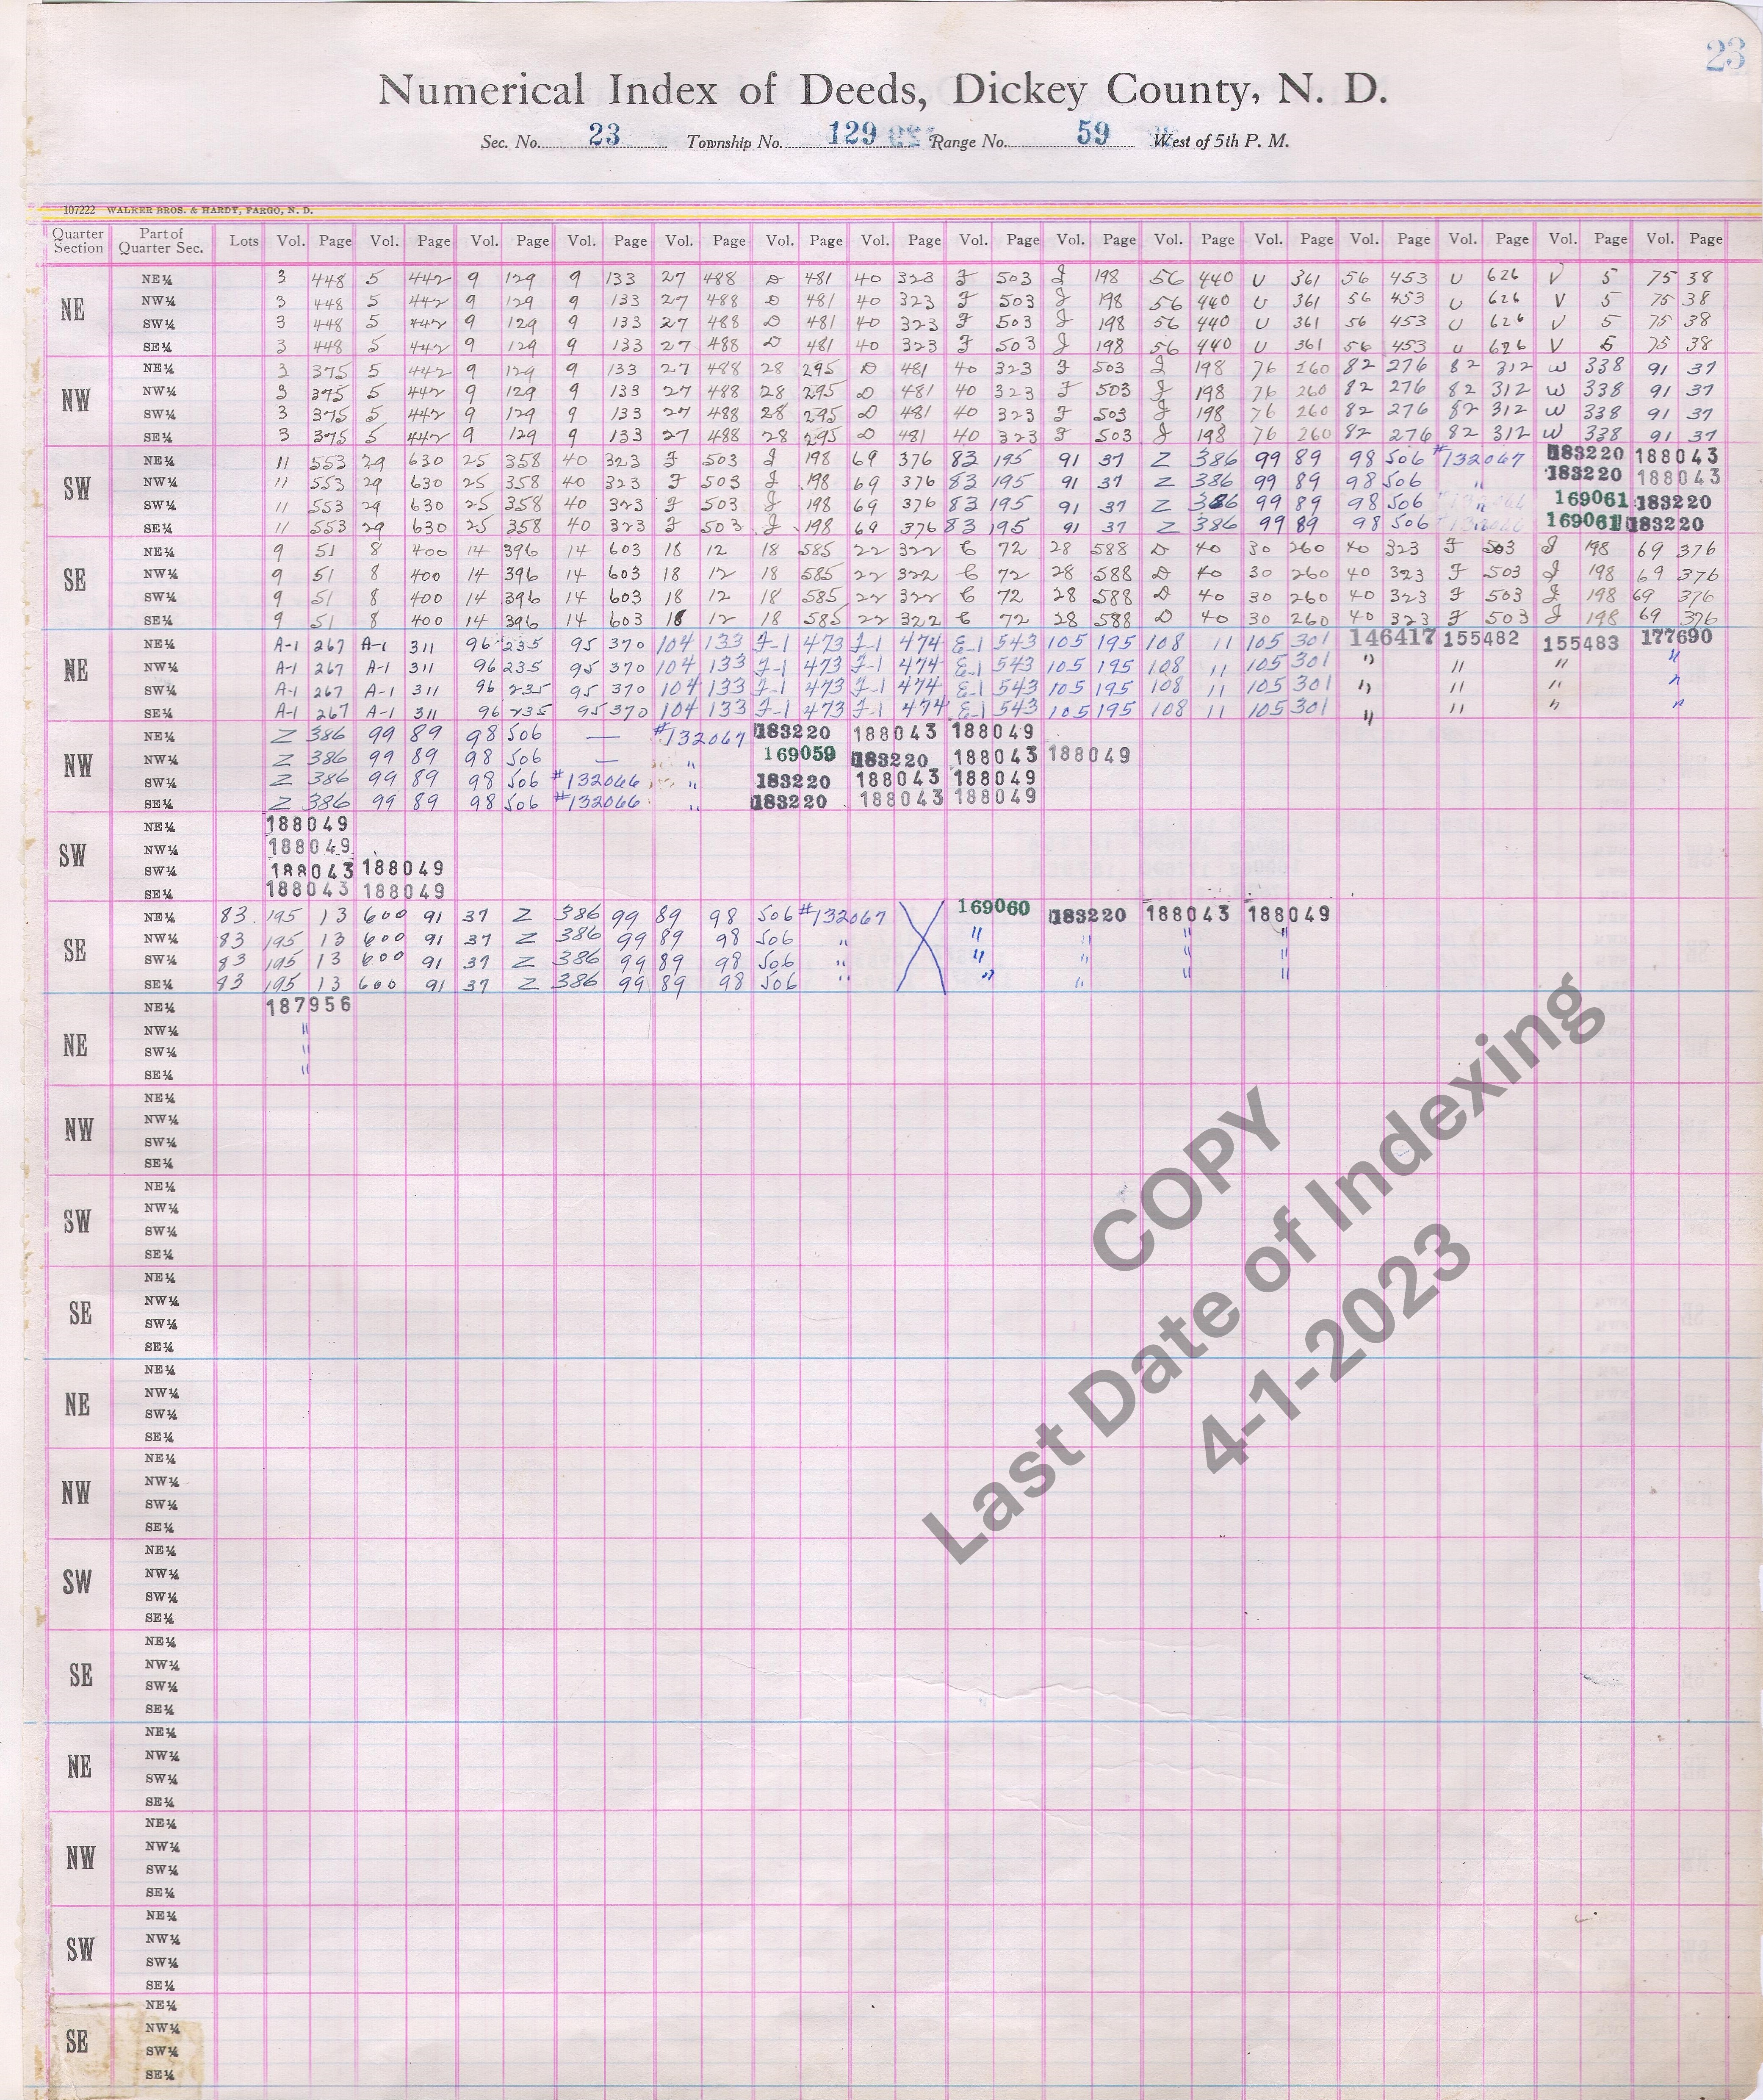 23
Numerical Index of Deeds, Dickey County, N. D.
Sec. No. 23 Township No. 129 Range No. 59 West of 5th P. M.
107222 WALKER BROS. & HARDY, FARGO, N. D.
Quarter Section Part of Quarter Sec. Lots Vol. Page Vol. Page Vol. Page Vol. Page Vol. Page Vol. Page Vol. Page Vol. Page Vol. Page Vol. Page Vol. Page Vol. Page Vol. Page Vol. Page Vol. Page
NE
NE¼ 3 448 5 442 9 129 9 133 27 488 D 481 40 323 F 503 J 198 56 440 U 361 56 453 U 626 V 5 75 38
NW¼ 3 448 5 442 9 129 9 133 27 488 D 481 40 323 F 503 J 198 56 440 U 361 56 453 U 626 V 5 75 38
SW¼ 3 448 5 442 9 129 9 133 27 488 D 481 40 323 F 503 J 198 56 440 U 361 56 453 U 626 V 5 75 38
SE¼ 3 448 5 442 9 129 9 133 27 488 D 481 40 323 F 503 J 198 56 440 U 361 56 453 U 626 V 5 75 38
NW
NE¼ 3 375 5 442 9 129 9 133 27 488 28 295 D 481 40 323 F 503 J 198 76 260 82 276 82 312 W 338 91 37
NW¼ 3 375 5 442 9 129 9 133 27 488 28 295 D 481 40 323 F 503 J 198 76 260 82 276 82 312 W 338 91 37
SW¼ 3 375 5 442 9 129 9 133 27 488 28 295 D 481 40 323 F 503 J 198 76 260 82 276 82 312 W 338 91 37
SE¼ 3 375 5 442 9 129 9 133 27 488 28 295 D 481 40 323 F 503 J 198 76 260 82 276 82 312 W 338 91 37
SW
NE¼ 11 553 29 630 25 358 40 323 F 503 J 198 69 376 83 195 91 37 Z 386 99 89 98 506 #132067 183220 188043
NW¼ 11 553 29 630 25 358 40 323 F 503 J 198 69 376 83 195 91 37 Z 386 99 89 98 506 " 183220 188043
SW¼ 11 553 29 630 25 358 40 323 F 503 J 198 69 376 83 195 91 37 Z 386 99 89 98 506 " 169061 183220
SE¼ 11 553 29 630 25 358 40 323 F 503 J 198 69 376 83 195 91 37 Z 386 99 89 98 506 169061 183220
SE
NE¼ 9 51 8 400 14 396 14 603 18 12 18 585 22 322 C 72 28 588 D 40 30 260 40 323 F 503 J 198 69 376
NW¼ 9 51 8 400 14 396 14 603 18 12 18 585 22 322 C 72 28 588 D 40 30 260 40 323 F 503 J 198 69 376
SW¼ 9 51 8 400 14 396 14 603 18 12 18 585 22 322 C 72 28 588 D 40 30 260 40 323 F 503 J 198 69 376
SE¼ 9 51 8 400 14 396 14 603 18 12 18 585 22 322 C 72 28 588 D 40 30 260 40 323 F 503 J 198 69 376
NE
NE¼ A-1 267 A-1 311 96 235 95 370 104 133 F-1 473 F-1 474 E-1 543 105 195 108 11 105 301 146417 155482 155483 177690
NW¼ A-1 267 A-1 311 96 235 95 370 104 133 F-1 473 F-1 474 E-1 543 105 195 108 11 105 301 " " " "
SW¼ A-1 267 A-1 311 96 235 95 370 104 133 F-1 473 F-1 474 E-1 543 105 195 108 11 105 301 " " " "
SE¼ A-1 267 A-1 311 96 235 95 370 104 133 F-1 473 F-1 474 E-1 543 105 195 108 11 105 301 " " " "
NW
NE¼ Z 386 99 89 98 506 — #132067 183220 188043 188049
NW¼ Z 386 99 89 98 506 — " 169059 183220 188043 188049
SW¼ Z 386 99 89 98 506 #132066 " 183220 188043 188049
SE¼ Z 386 99 89 98 506 #132066 " 183220 188043 188049
SW
NE¼ 188049
NW¼ 188049
SW¼ 188043 188049
SE¼ 188043 188049
SE
NE¼ 83 195 13 600 91 37 Z 386 99 89 98 506 #132067 169060 183220 188043 188049
NW¼ 83 195 13 600 91 37 Z 386 99 89 98 506 " " " " "
SW¼ 83 195 13 600 91 37 Z 386 99 89 98 506 " " " " "
SE¼ 93 195 13 600 91 37 Z 386 99 89 98 506 " " " " "
NE
NE¼ 187956
NW¼ "
SW¼ "
SE¼ "
NW
NE¼
NW¼
SW¼
SE¼
SW
NE¼
NW¼
SW¼
SE¼
SE
NE¼
NW¼
SW¼
SE¼
NE
NE¼
NW¼
SW¼
SE¼
NW
NE¼
NW¼
SW¼
SE¼
SW
NE¼
NW¼
SW¼
SE¼
SE
NE¼
NW¼
SW¼
SE¼
NE
NE¼
NW¼
SW¼
SE¼
NW
NE¼
NW¼
SW¼
SE¼
SW
NE¼
NW¼
SW¼
SE¼
SE
NE¼
NW¼
SW¼
SE¼
COPY
Last Date of Indexing
4-1-2023